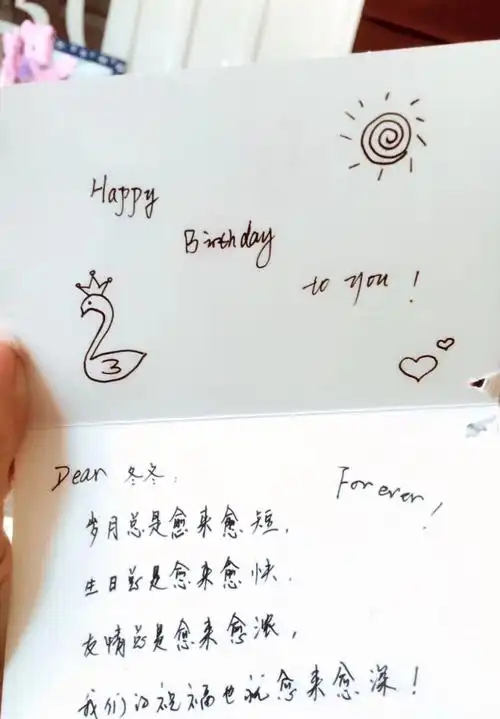 Happy
Birthday
to you!
Dear 冬冬:
Forever!
岁月总是愈来愈短,
生日总是愈来愈快.
友情总是愈来愈浓,
我们的祝福也就愈来愈深!